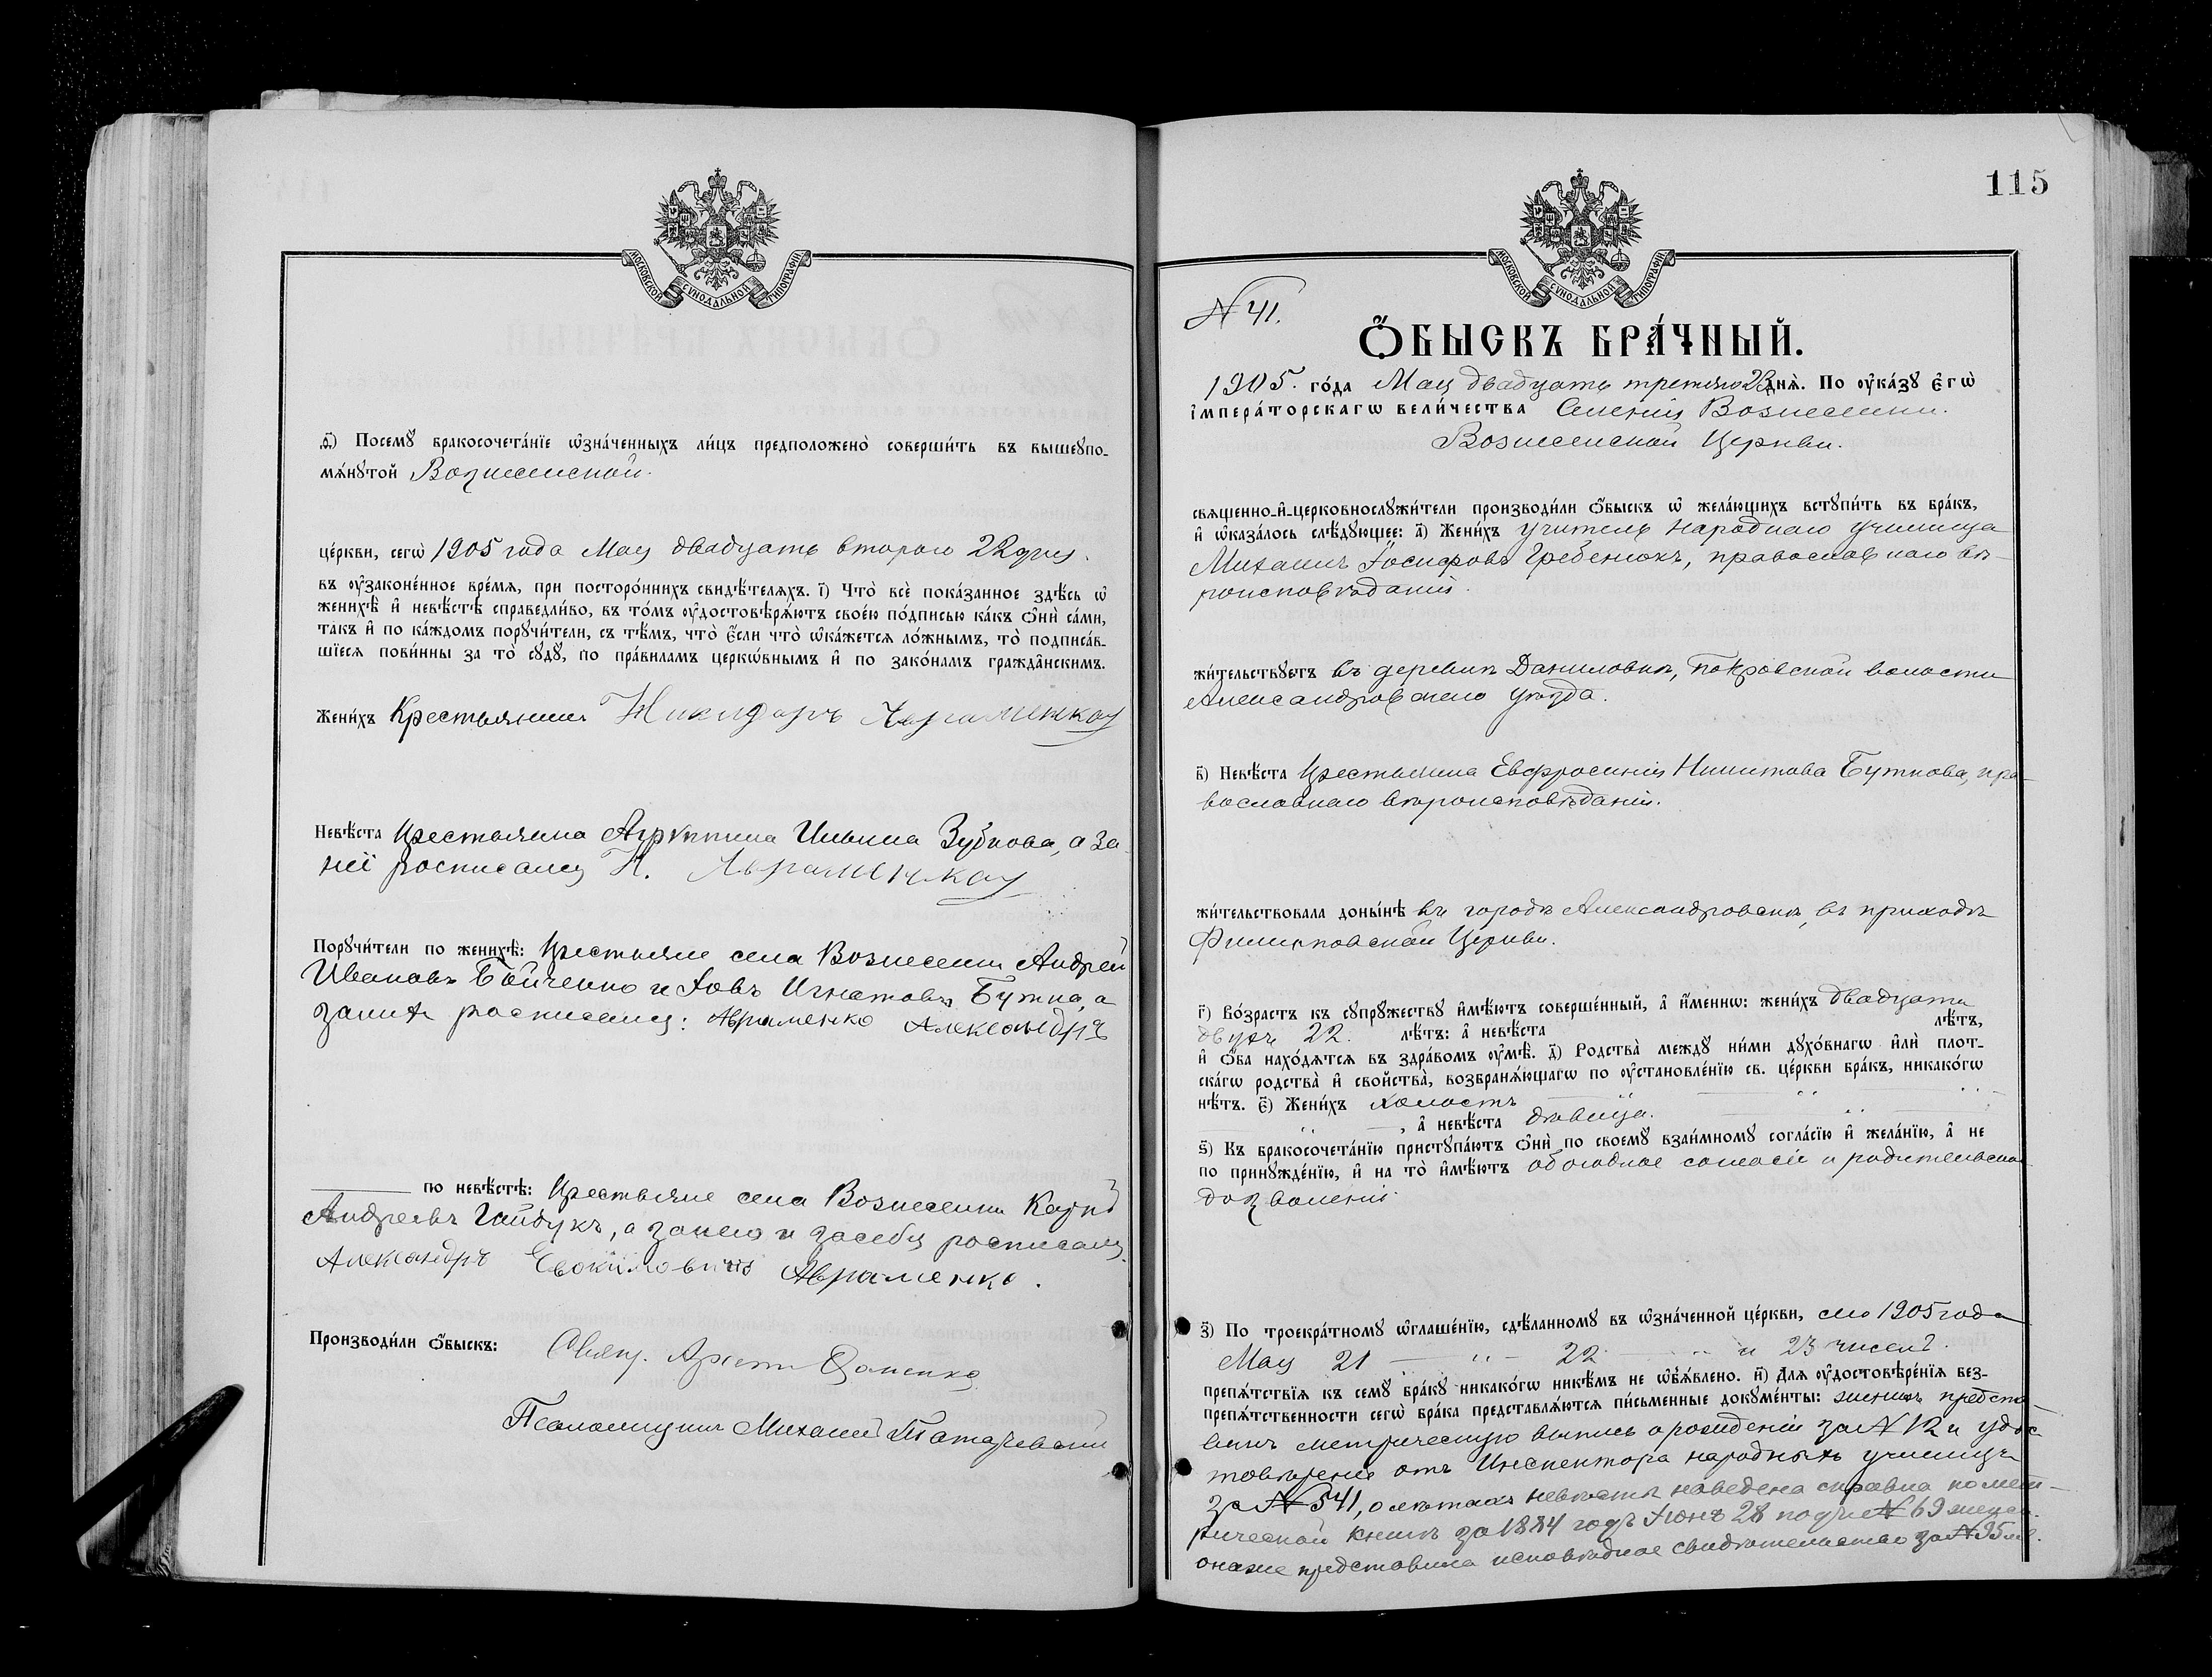 МОСКОВСКОЙ СѴНОДАЛЬНОЙ ТИПОГРАФІИ
ѳ҃) Посемꙋ̀ бракосочета́нїе ѡ҆зна́ченныхъ ли́цъ предположено̀ соверши́ть въ вышеꙋпо-
мѧ́нꙋтой Вознесенской.
це́ркви, сегѡ̀ 1905 года Мая двадцать второго 22 дня.
въ ᲂу҆зако́ненное вре́мѧ, при посторо́ннихъ свидѣ́телѧхъ. і҃) Что̀ всѐ пока́занное здѣ́сь ѡ҆
женихѣ̀ и҆ невѣ́стѣ справедли́во, въ то́мъ ᲂу҆достовѣрѧ́ютъ свое́ю по́дписью ка́къ ѻ҆нѝ са́ми,
та́къ и҆ по ка́ждомъ порꙋчи́тели, съ тѣ́мъ, что̀ є҆́сли что̀ ѡ҆ка́жетсѧ ло́жнымъ, то̀ подписа́в-
шїесѧ пови́нны за то̀ сꙋдꙋ̀, по пра́виламъ церкѡ́внымъ и҆ по зако́намъ гражда̂нскимъ.
Жени́хъ Крестьянинъ Никидоръ Авраменкоу
Невѣ́ста Крестьянка Агриппина Ильина Зубкова, а за
неё росписался Н. Авраменкоу
Порꙋчи́тели по женихѣ̀: Крестьяне села Вознесенки Андрей
Ивановъ Бойченко и Іовъ Игнатовъ Бутко, а
за нихъ росписался: Авраменко Александръ
по невѣ́стѣ: Крестьяне села Вознесенки Карпъ
Андреевъ Гайдукъ, а за него и за себя росписался
Александръ Евокимовичъ Авраменко.
Производи́ли ѻ҆́быскъ: Свящ.
Псаломщикъ Михаилъ
115
МОСКОВСКОЙ СѴНОДАЛЬНОЙ ТИПОГРАФІИ
№ 41.
Ѻ҆́БЫСКЪ БРА́ЧНЫЙ.
1905. го́да Мая двадцать третьяго 23 днѧ̀. По ᲂу҆ка́зꙋ є҆гѡ̀
і҆мпера́торскагѡ вели́чества Селенія Вознесенки.
Вознесенской Церкви.
свѧщенно-и҆-церковнослꙋжи́тели производи́ли ѻ҆́быскъ ѡ҆ жела́ющихъ встꙋпи́ть въ бра́къ,
и҆ ѡ҆каза́лось слѣ́дꙋющее: а҃) Жени́хъ учитель народнаго училища
Михаилъ Іосифовъ Гребенюкъ, православнаго вѣ-
роисповѣданія.
жи́тельствꙋетъ въ деревнѣ Даниловкѣ, Покровской волости
Александровскаго уѣзда.
в҃) Невѣ́ста Крестьянка Евфросинія Никитова Буткова, пра-
вославнаго вѣроисповѣданія.
жи́тельствовала доны́нѣ въ городѣ Александровскѣ, въ приходѣ
Филипповской Церкви.
г҃) Во́зрастъ къ сꙋпрꙋ́жествꙋ и҆мѣ́ютъ соверше́нный, а҆ и҆́меннѡ: жени́хъ двадцати
двухъ 22. лѣ́тъ: а҆ невѣ́ста лѣ́тъ,
и҆ ѻ҆́ба нахо́дѧтсѧ въ здра́вомъ ᲂу҆мѣ̀. д҃) Родства̀ междꙋ̀ ни́ми дꙋхо́внагѡ и҆лѝ плот-
ска́гѡ родства̀ и҆ свойства̀, возбранѧ́ющагѡ по ᲂу҆становле́нїю св. це́ркви бра́къ, никако́гѡ
нѣ́тъ. є҃) Жени́хъ холостъ
, а҆ невѣ́ста дѣвица.
ѕ҃) Къ бракосочета́нїю пристꙋпа́ютъ ѻ҆нѝ по своемꙋ̀ взаи́мномꙋ согла́сїю и҆ жела́нїю, а҆ не
по принꙋжде́нїю, и҆ на то̀ и҆мѣ́ютъ обоюдное согласіе и родительское
дозволеніе.
з҃) По троекра́тномꙋ ѡ҆глаше́нїю, сдѣ́ланномꙋ въ ѡ҆зна́ченной це́ркви, сего 1905 года
Мая 21 — " — 22 — " и 23 чиселъ.
препѧ́тствїѧ къ семꙋ̀ бра́кꙋ никако́гѡ никѣ́мъ не ѡ҆б̾ѧ́влено. и҃) Длѧ ᲂу҆достовѣре́нїѧ без-
препѧ́тственности сегѡ̀ бра́ка представлѧ́ютсѧ пи́сьменные докꙋме́нты: женихъ предста-
вилъ метрическую выпись о рожденіи за № 12 и удос-
товѣреніе отъ Инспектора народныхъ училищъ
за № 541, о лѣтахъ невѣсты наведена справка по мет-
рической книгѣ за 1884 годъ Іюнь 28 подъ № 69
она же представила исповѣдное свидѣтельство за № 95